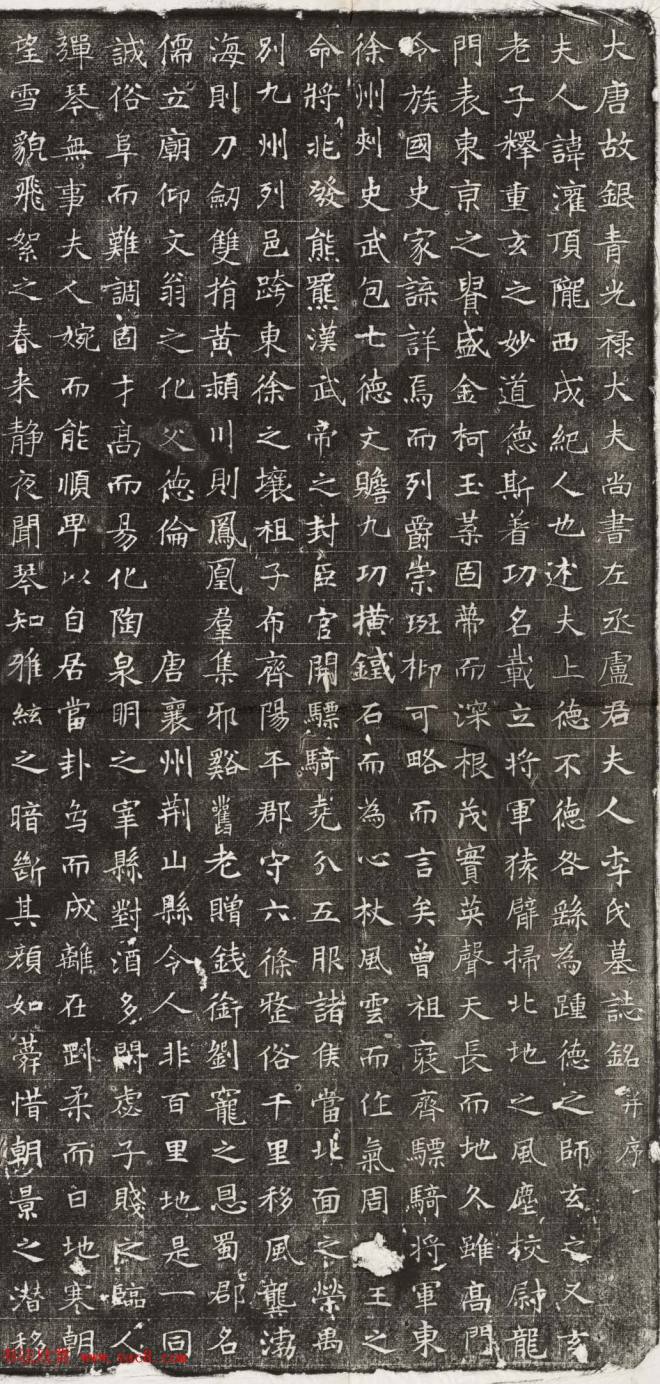 大唐故銀青光祿大夫尚書左丞盧君夫人李氏墓誌銘并序
夫人諱灌頂隴西成紀人也述夫上德不德咎繇為踵德之師玄之又玄
老子釋重玄之妙道德斯着功名載立將軍猨臂掃北地之風塵校尉龍
門表東京之冑盛金柯玉葉固蒂而深根茂實英聲天長而地久雖高門
令族國史家諜詳焉而列爵崇班抑可略而言矣曾祖裒齊驃騎將軍東
徐州刺史武包七德文贍九功橫鐵石而為心杖風雲而作氣周王之
命將兆發熊羆漢武帝之封臣官開驃騎堯分五服諸侯當北面之榮禹
別九州列邑跨東徐之壤祖子布齊陽平郡守六條整俗千里移風龔渤
海則刀劒雙捐黃潁川則鳳凰羣集邪谿舊老贈錢銜劉寵之恩蜀郡名
儒立廟仰文翁之化父德倫唐襄州荆山縣令人非百里地是一同
誠俗阜而難調固才高而易化陶泉明之宰縣對酒多閑宓子賤之臨人
彈琴無事夫人婉而能順卑以自居當卦爻而成離在剛柔而曰地寒朝
望雪貌飛絮之春來静夜聞琴知雅絃之暗斷其顏如蕣惜朝景之潛移
www.sac8.com